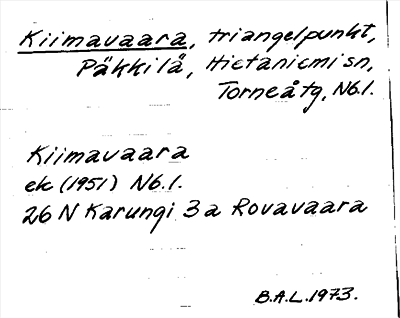 Kiimavaara, triangelpunkt,
Päkkilä, Hietaniemi sn,
Torneå tg, Nb.1.
Kiimavaara
ek (1951) Nb.1.
26 N Karungi 3 a Rovavaara
B.A.L. 1973.